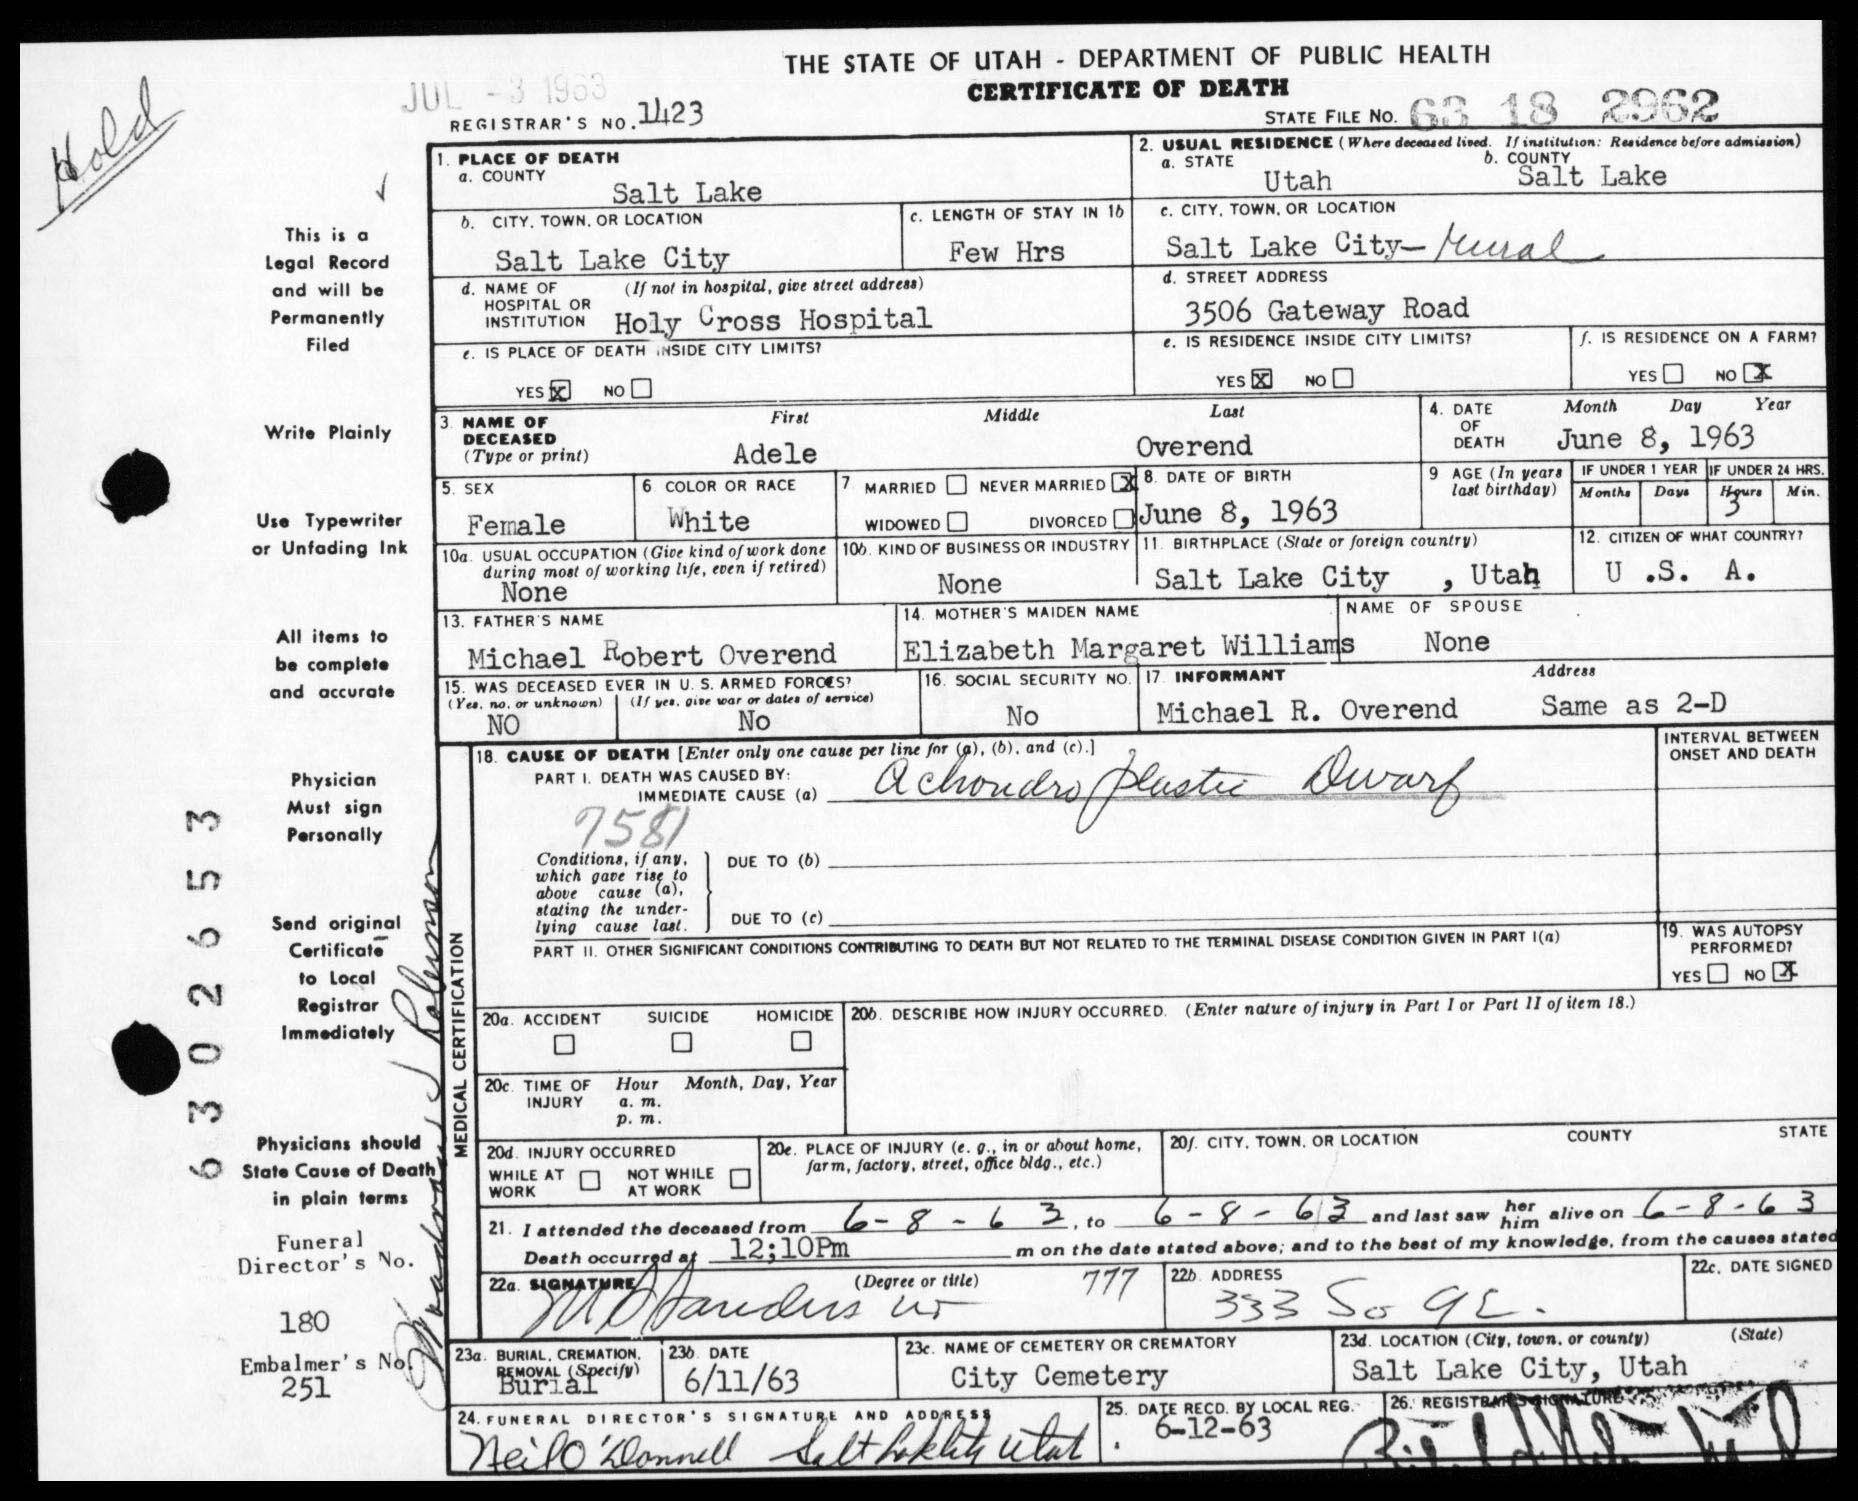 THE STATE OF UTAH - DEPARTMENT OF PUBLIC HEALTH
CERTIFICATE OF DEATH
JUL -3 1963
REGISTRAR'S NO. 1423
STATE FILE NO. 63 18 2962
Hold
1. PLACE OF DEATH
a. COUNTY
Salt Lake
2. USUAL RESIDENCE (Where deceased lived. If institution: Residence before admission)
a. STATE
Utah
b. COUNTY
Salt Lake
b. CITY, TOWN, OR LOCATION
Salt Lake City
c. LENGTH OF STAY IN 1b
Few Hrs
c. CITY, TOWN, OR LOCATION
Salt Lake City- Rural
d. NAME OF HOSPITAL OR INSTITUTION (If not in hospital, give street address)
Holy Cross Hospital
d. STREET ADDRESS
3506 Gateway Road
e. IS PLACE OF DEATH INSIDE CITY LIMITS?
YES X NO
e. IS RESIDENCE INSIDE CITY LIMITS?
YES X NO
f. IS RESIDENCE ON A FARM?
YES NO X
3. NAME OF DECEASED (Type or print)
First Middle Last
Adele Overend
4. DATE OF DEATH
Month Day Year
June 8, 1963
5. SEX
Female
6 COLOR OR RACE
White
7 MARRIED NEVER MARRIED X
WIDOWED DIVORCED
8. DATE OF BIRTH
June 8, 1963
9 AGE (In years last birthday)
IF UNDER 1 YEAR
Months Days
IF UNDER 24 HRS.
Hours Min.
3
10a. USUAL OCCUPATION (Give kind of work done during most of working life, even if retired)
None
10b. KIND OF BUSINESS OR INDUSTRY
None
11. BIRTHPLACE (State or foreign country)
Salt Lake City , Utah
12. CITIZEN OF WHAT COUNTRY?
U .S. A.
13. FATHER'S NAME
Michael Robert Overend
14. MOTHER'S MAIDEN NAME
Elizabeth Margaret Williams
NAME OF SPOUSE
None
15. WAS DECEASED EVER IN U. S. ARMED FORCES?
(Yes, no, or unknown) (If yes, give war or dates of service)
NO No
16. SOCIAL SECURITY NO.
No
17 INFORMANT Address
Michael R. Overend Same as 2-D
18. CAUSE OF DEATH [Enter only one cause per line for (a), (b), and (c).]
PART I. DEATH WAS CAUSED BY:
IMMEDIATE CAUSE (a) Achondroplastic Dwarf
7581
INTERVAL BETWEEN ONSET AND DEATH
Conditions, if any, which gave rise to above cause (a), stating the underlying cause last.
DUE TO (b)
DUE TO (c)
PART II. OTHER SIGNIFICANT CONDITIONS CONTRIBUTING TO DEATH BUT NOT RELATED TO THE TERMINAL DISEASE CONDITION GIVEN IN PART I(a)
19. WAS AUTOPSY PERFORMED?
YES NO X
MEDICAL CERTIFICATION
20a. ACCIDENT SUICIDE HOMICIDE
20b. DESCRIBE HOW INJURY OCCURRED. (Enter nature of injury in Part I or Part II of item 18.)
20c. TIME OF INJURY
Hour Month, Day, Year
a. m.
p. m.
20d. INJURY OCCURRED
WHILE AT WORK NOT WHILE AT WORK
20e. PLACE OF INJURY (e. g., in or about home, farm, factory, street, office bldg., etc.)
20f. CITY, TOWN, OR LOCATION COUNTY STATE
21. I attended the deceased from 6-8-63, to 6-8-63 and last saw her him alive on 6-8-63
Death occurred at 12;10Pm m on the date stated above; and to the best of my knowledge, from the causes stated
22a. SIGNATURE (Degree or title)
Sanders
777
22b. ADDRESS
333 So 9 E.
22c. DATE SIGNED
23a. BURIAL, CREMATION, REMOVAL (Specify)
Burial
23b. DATE
6/11/63
23c. NAME OF CEMETERY OR CREMATORY
City Cemetery
23d. LOCATION (City, town, or county) (State)
Salt Lake City, Utah
24. FUNERAL DIRECTOR'S SIGNATURE AND ADDRESS
Neil O'Donnell Salt Lake City Utah
25. DATE RECD. BY LOCAL REG.
6-12-63
26. REGISTRAR'S SIGNATURE
This is a
Legal Record
and will be
Permanently
Filed
Write Plainly
Use Typewriter
or Unfading Ink
All items to
be complete
and accurate
Physician
Must sign
Personally
Send original
Certificate
to Local
Registrar
Immediately
Physicians should
State Cause of Death
in plain terms
Funeral
Director's No.
180
Embalmer's No.
251
6302653